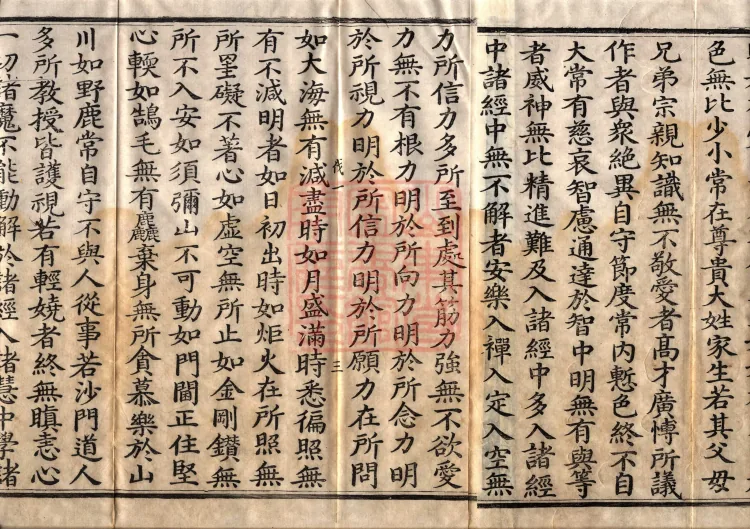 色無比少小常在尊貴大姓家生若其父母
兄弟宗親知識無不敬愛者髙才廣愽所議
作者與衆絶異自守節度常内慙色終不自
大常有慈哀智慮通達於智中明無有與等
者威神無比精進難及入諸經中多入諸經
中諸經中無不解者安樂入禪入定入空無
力所信力多所至到處其筋力強無不欲愛
力無不有根力明於所向力明於所念力明
於所視力明於所信力明於所願力在所問
伐一 三
如大海無有減盡時如月盛滿時悉徧照無
有不減明者如日初出時如炬火在所照無
所罣礙不著心如虚空無所止如金剛鑽無
所不入安如須彌山不可動如門閫正住堅
心輭如鵠毛無有麤棄身無所貪慕樂於山
川如野鹿常自守不與人從事若沙門道人
多所教授皆護視若有輕嬈者終無瞋恚心
一切諸魔不能動解於諸經入諸慧中學諸